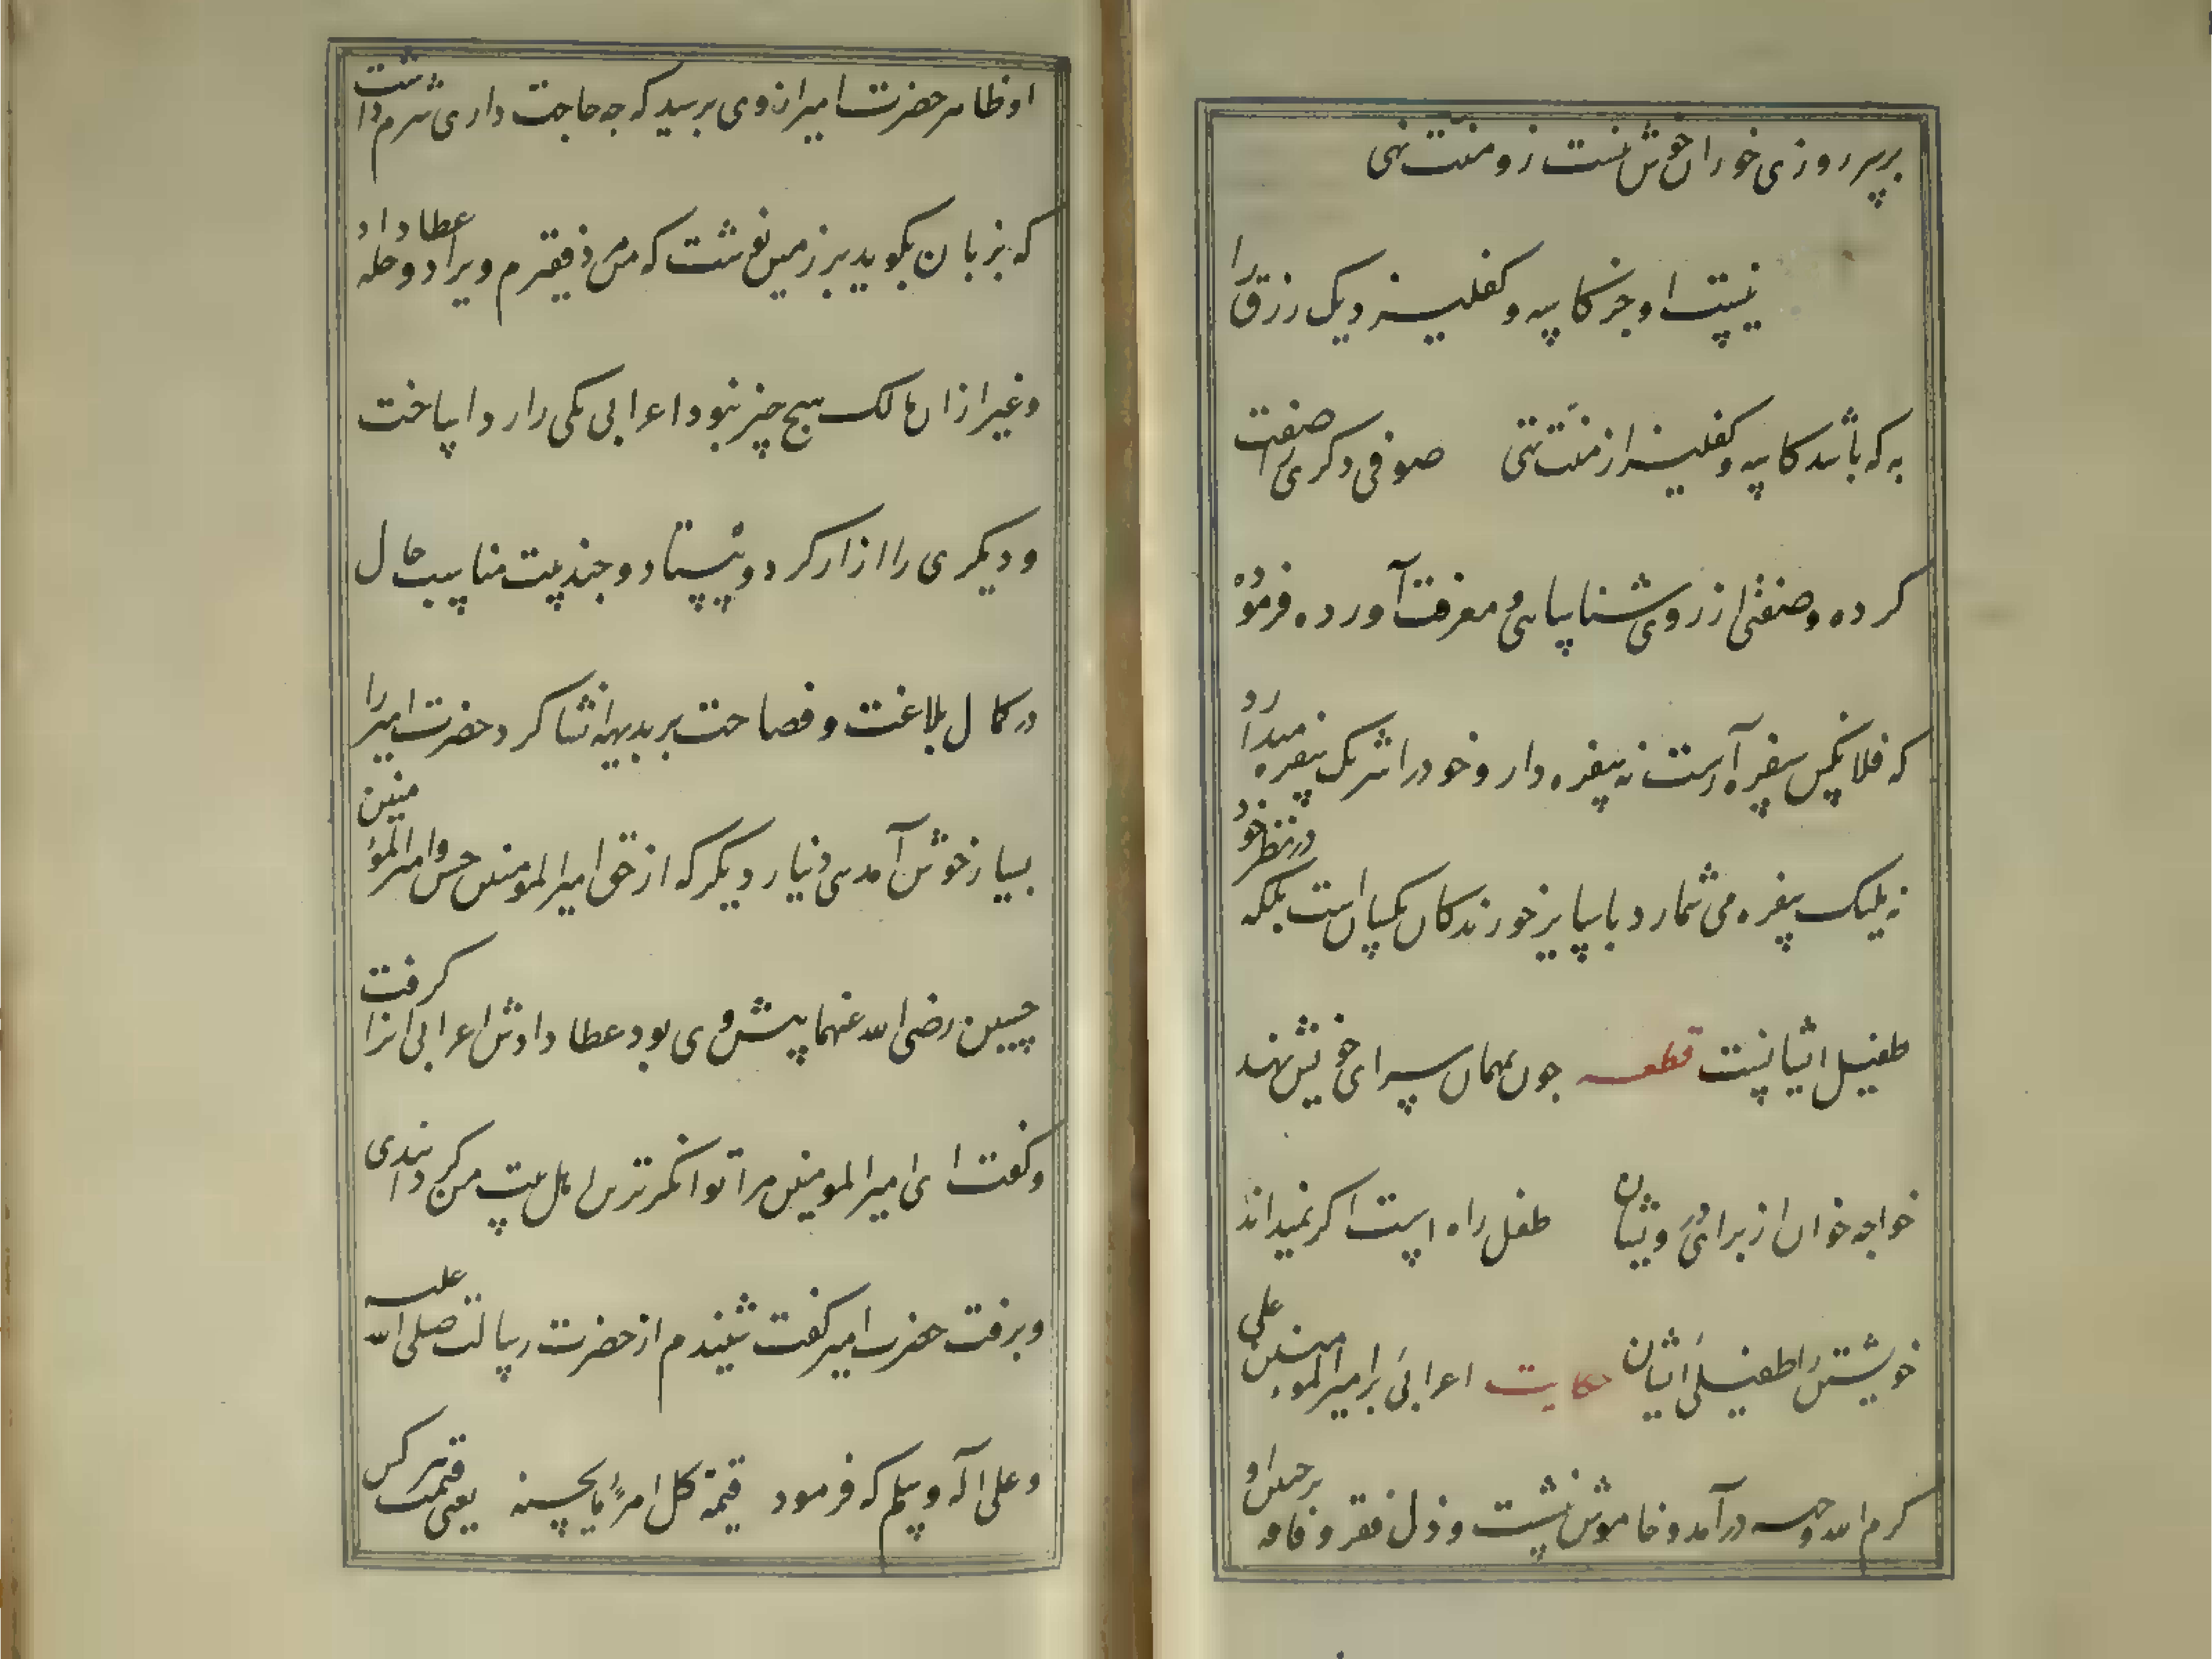 بر سر روزی خوران خوش نیست زو منت نهی
نیست او جز کاسه و کفلیز دیک رزق را
به که باشد کاسه و کفلیز از منت تهی صوفی دکری را صفت
کرده و صفتی از روی شناسایی و معرفت آورده فرموده
که فلانکس سفره آراست نه سفره دار و خود را شریک سفره میدارد
نه ملیک سفره می شمارد با سایر خورندکان یکسان است بلکه در نظر خود
طفیل ایشانست قطعه چون مهمان سرای خویش نهد
خواجه خوان از برای درویشان طفل راه است اکر نمیداند
خویشتن را طفیلی ایشان حکایت اعرابی بر امیر المومنین علی
کرم الله وجهه درآمد و خاموش بنشست و ذل فقر و فاقه بر جبین او
او ظاهر حضرت امیر از وی پرسید که چه حاجت داری شرم داشت
که بزبان بکوید بر زمین نوشت که من فقیرم ویرا دو حله عطا داد
و غیر از ان مالک هیچ چیز نبود اعرابی یکی را ردا ساخت
و دیکری را ازار کرد و بیستاد و چند بیت مناسب حال
در کمال بلاغت و فصاحت بر بدیهه انشا کرد حضرت امیر را
بسیار خوش آمد سی دینار دیکر که از حق امیر المومنین حسن و امیر المومنین
حسین رضی الله عنهما پیش وی بود عطا دادش اعرابی انرا کرفت
و کفت ای امیر المومنین مرا توانکرترین اهل بیت من کردانیدی
و برفت حضرت امیر کفت شنیدم از حضرت رسالت صلی الله علیه
و علی آله و سلم که فرمود قیمة کل امرئ ما یحسنه یعنی قیمت هر کس